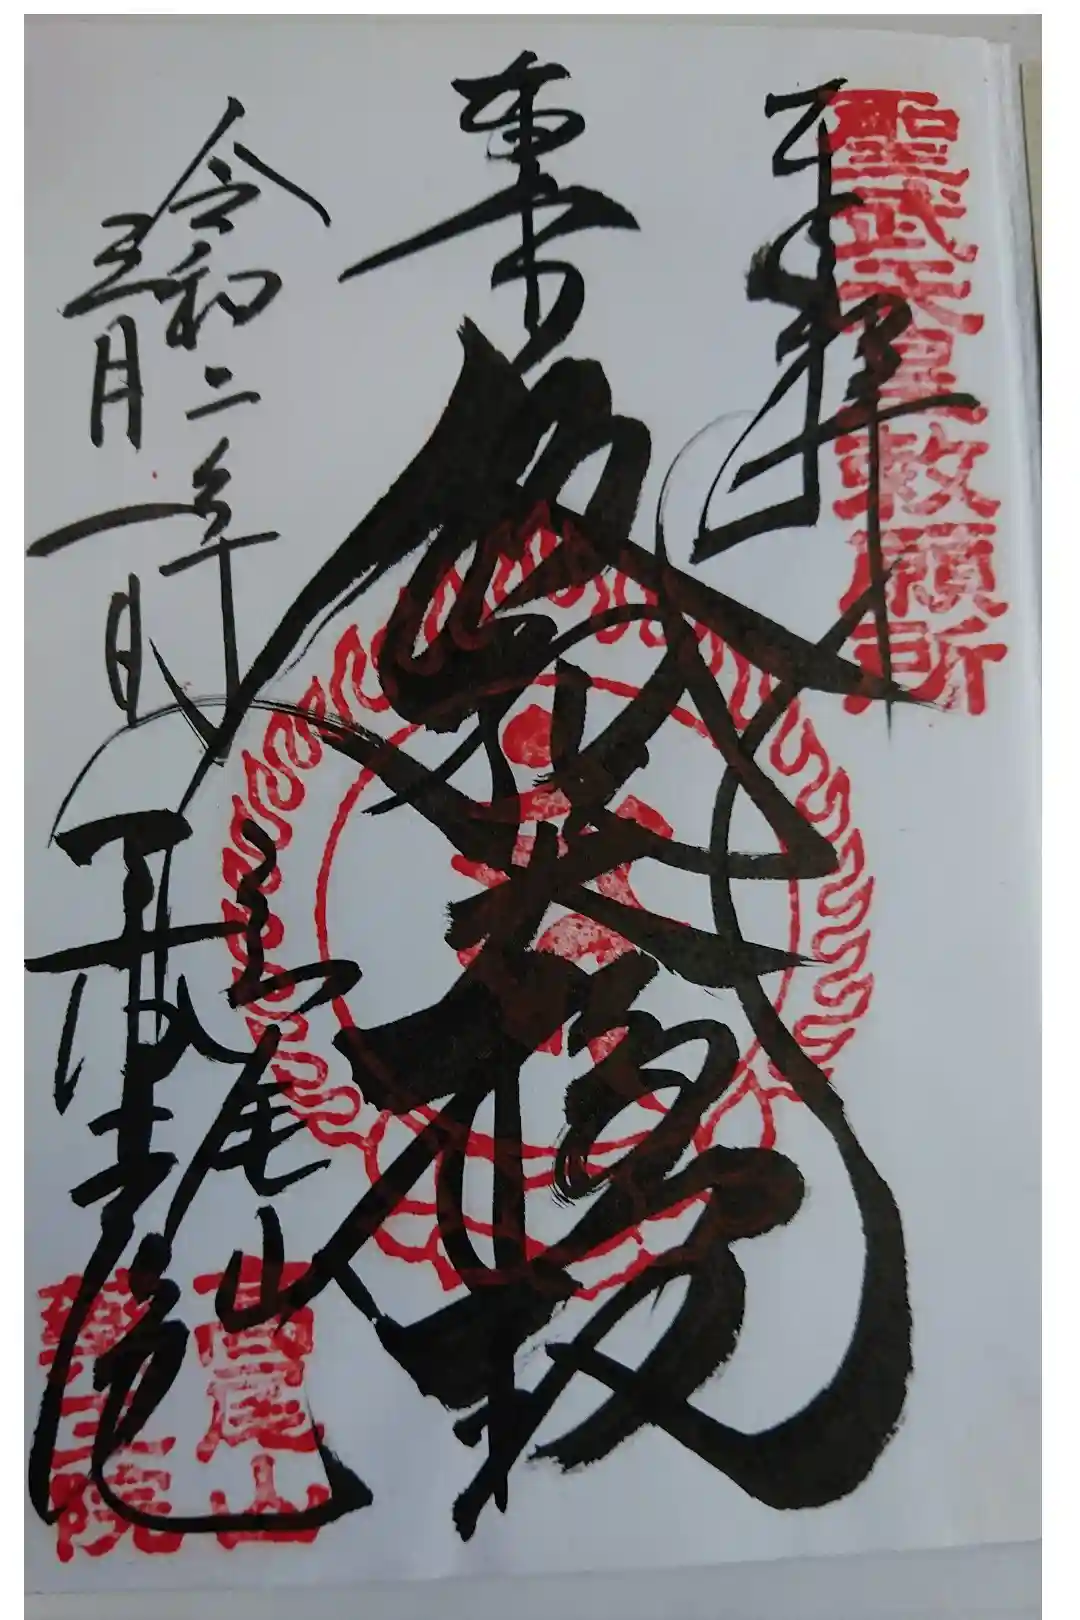 奉拝
聖武天皇敕願所
東
飯縄大権現
令和二年
五月一日
高尾山
薬王院
高尾山
薬王院